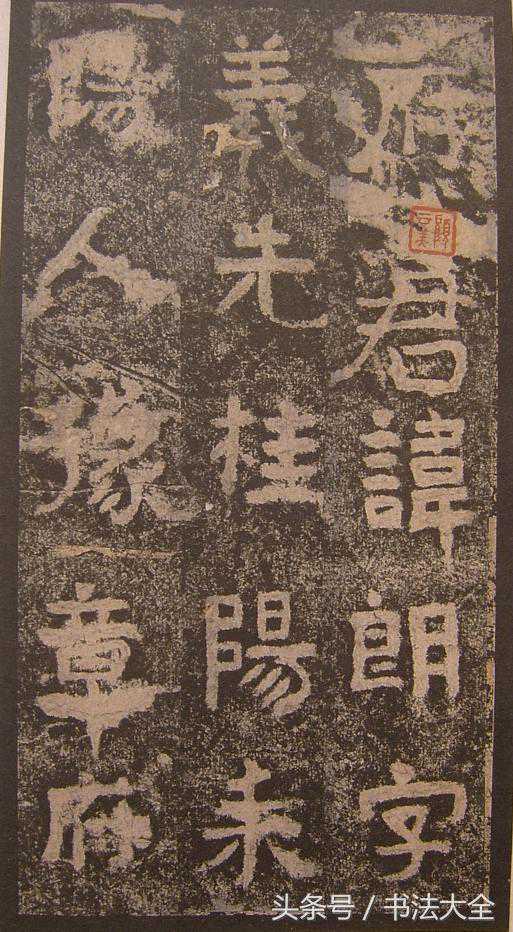 府君諱朗字
義先桂陽耒
陽人豫章府
头条号 / 书法大全